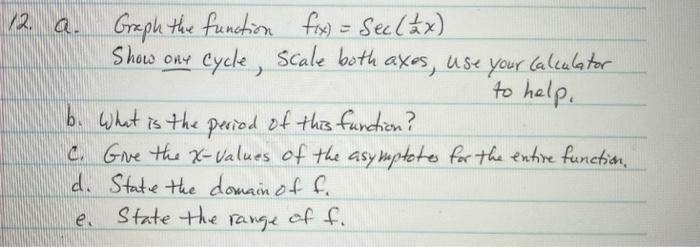 12. a. Graph the function f(x) = Sec(½x)
Show one cycle, scale both axes, use your calculator
to help.
b. What is the period of this function?
c. Give the x-values of the asymptotes for the entire function.
d. State the domain of f.
e. State the range of f.